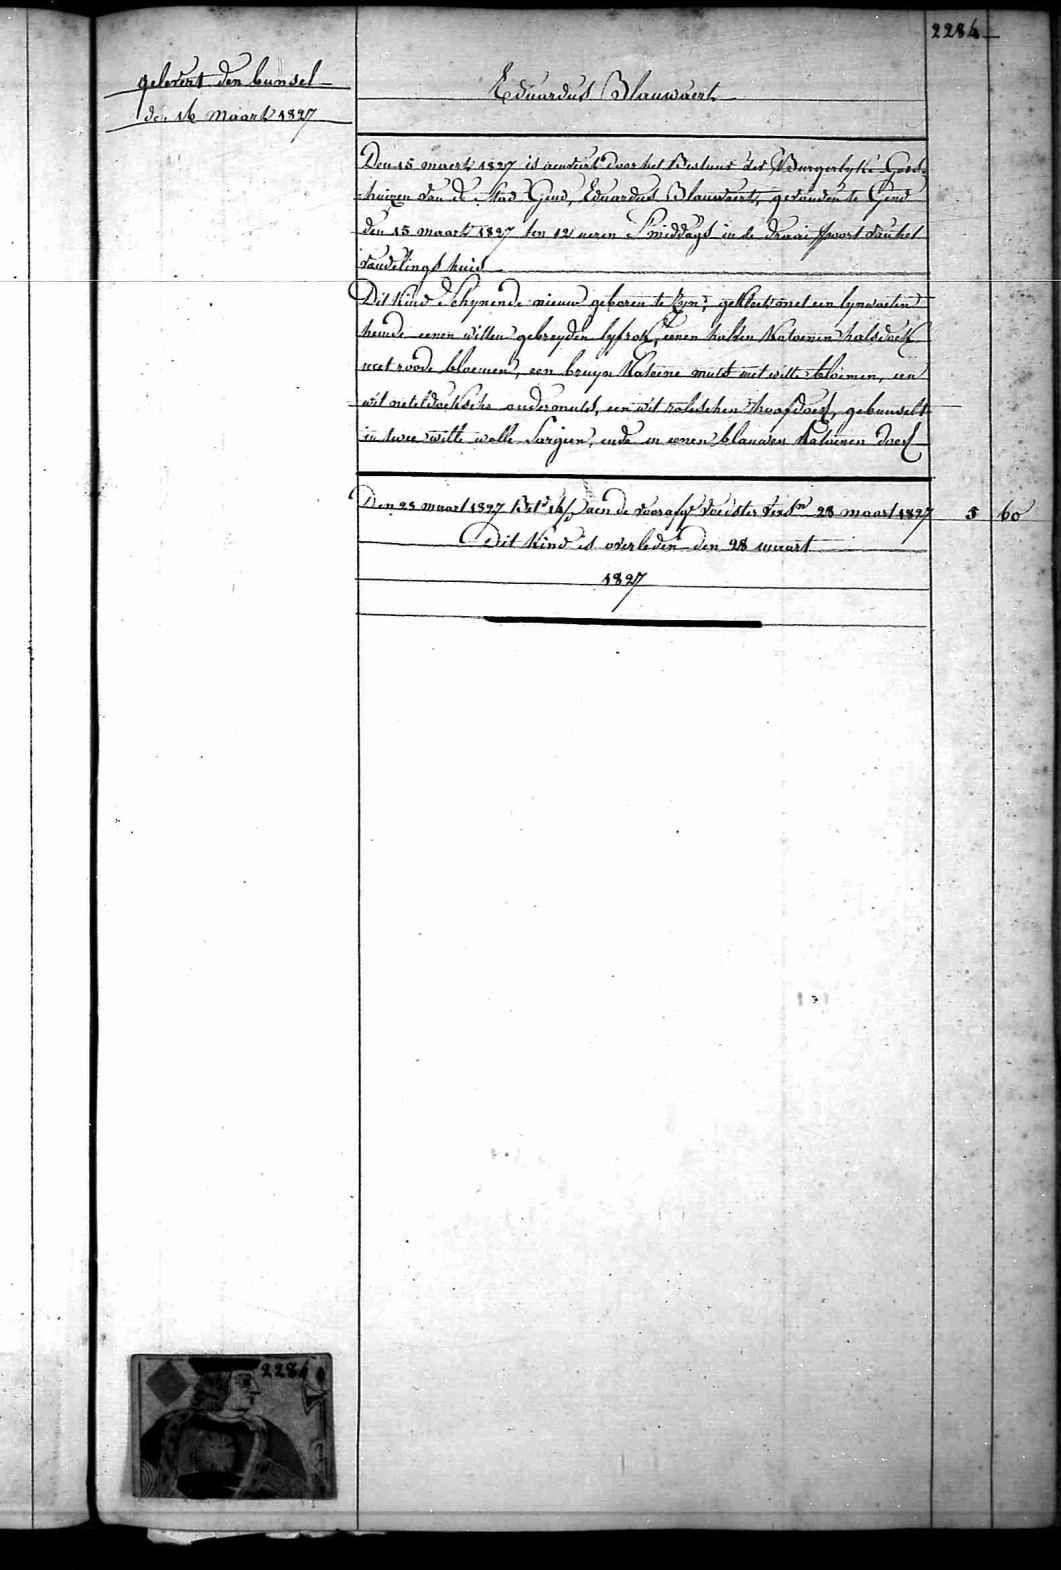 2284
gelevert den bunsel
den 16 maart 1827
Eduardus Blauwaert
Den 15 maert 1827 is aenveirt door het Bestuur der Burgerlyke Gods-
huizen van de Stad Gend, Eduardus Blauwaert, gevonden te Gend
den 15 maart 1827 ten 12 ueren S'middags in de draai poort van het
vondelings huis
Dit Kind Schynende nieuw geboren te zyn, gekleet met een lynwaeten
hemde eenen witten gebreyden lyfrok, eenen halven Katoenen halsdoek
met roode bloemen, een bruyn Katoene muts met witte bloemen, een
wit neteldoeksche ondermuts, een wit hoofdoek, gebunselt
in twee witte wolle Sargien, ende in eenen blauwen Katoenen doek
Den 23 maart 1827 aen de voedster 28 maart 1827 5 60
Dit Kind is overleden den 28 maart
1827
2284